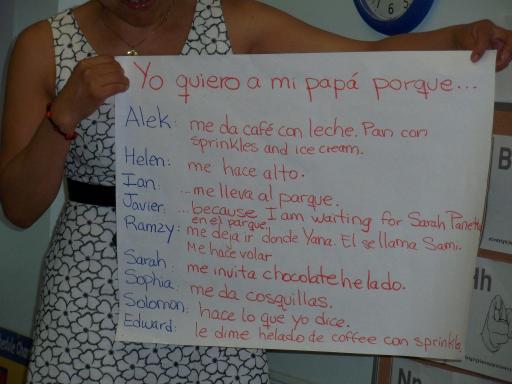 Yo quiero a mi papá porque...
Alek: me da café con leche. Pan con
sprinkles and ice cream.
Helen: me hace alto.
Ian: ...me lleva al parque.
Javier: ...because I am waiting for Sarah
en el parque.
Ramzy: me deja ir donde Yana. El se llama Sami.
Me hace volar
Sarah: me invita chocolate helado.
Sophia: me da cosquillas.
Solomon: hace lo que yo dice.
Edward: le dime helado de coffee con sprinkle
B
Hh
Nn